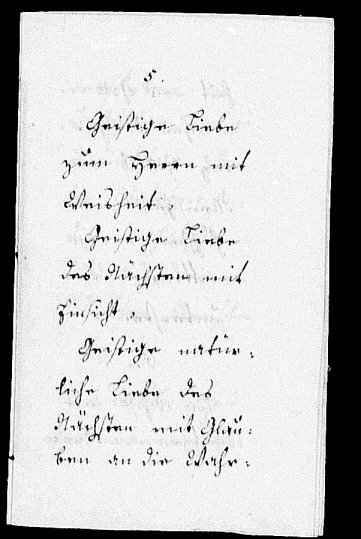 5.
Geistige Liebe
zum Herrn mit
Weisheit.
Geistige Liebe
des Nächsten mit
Einsicht.
Geistige natür-
liche Liebe des
Nächsten mit Glau-
ben an die Wahr-